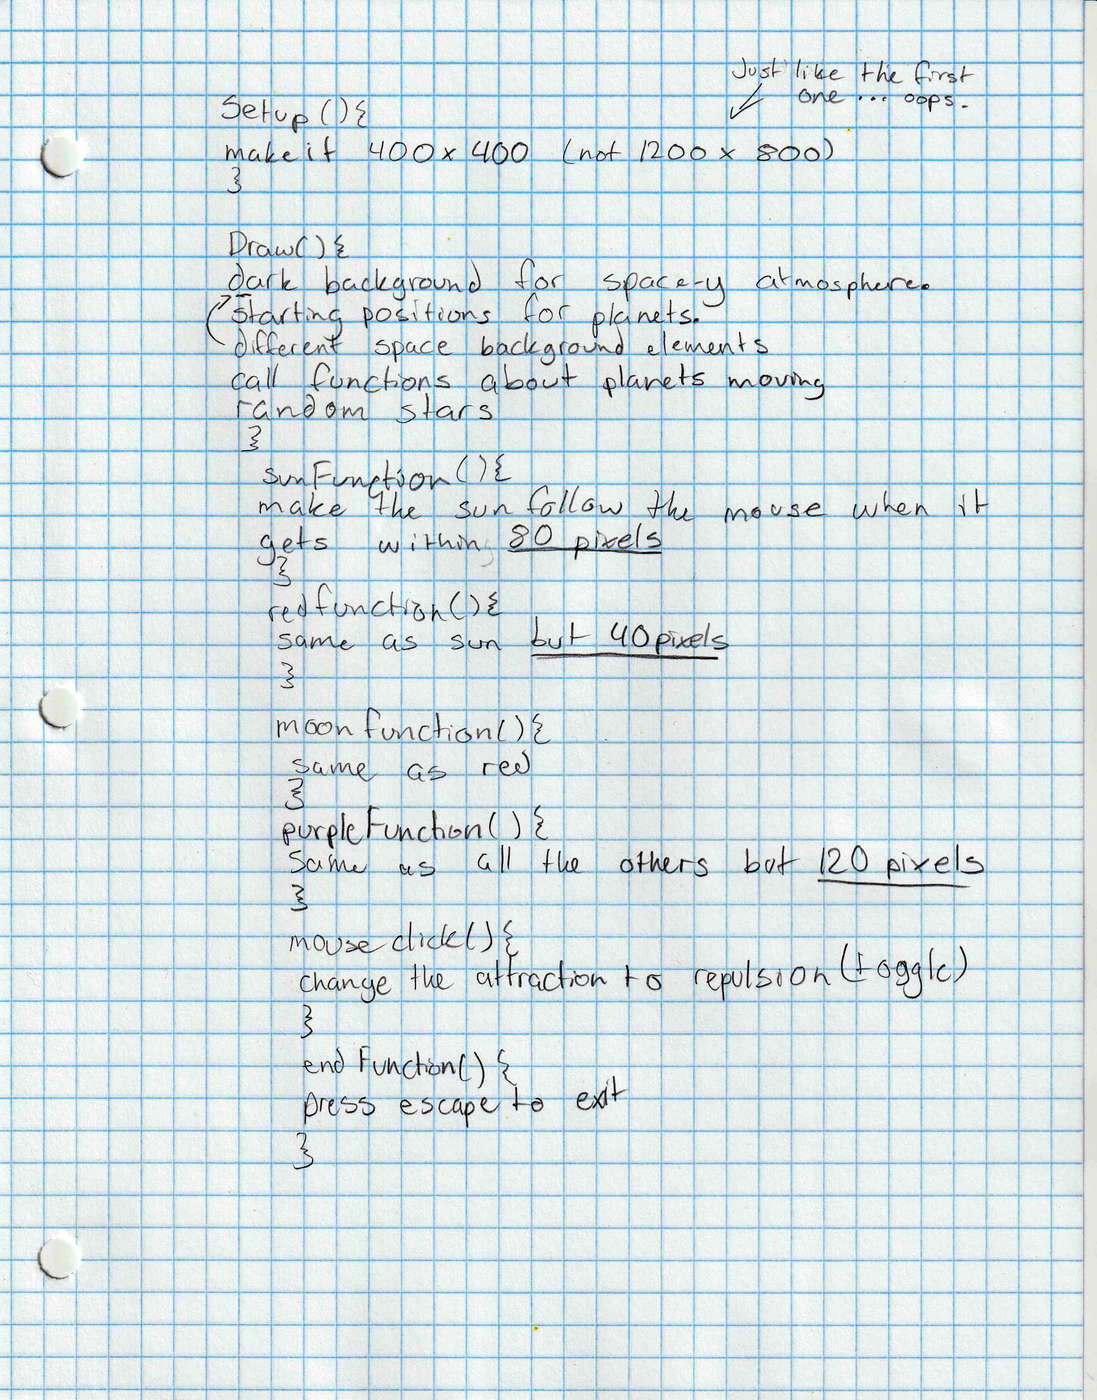 Just like the first
one ... oops.
Setup(){
make it 400x400 (not 1200 x 800)
}
Draw(){
dark background for space-y atmosphere.
starting positions for planets.
different space background elements
call functions about planets moving
random stars
}
sunFunction(){
make the sun follow the mouse when it
gets within 80 pixels
}
redfunction(){
same as sun but 40 pixels
}
moon function(){
same as red
}
purpleFunction(){
Same as all the others but 120 pixels
}
mouse click(){
change the attraction to repulsion (toggle)
}
end Function(){
press escape to exit
}